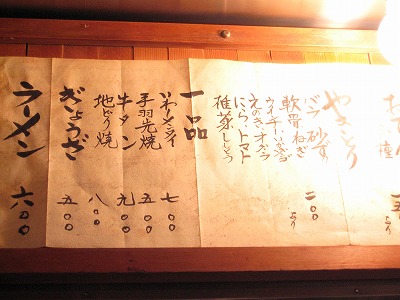 おでん
一五〇より
やきとり
バラ 砂ずり
軟骨ねぎ
二〇〇より
えのき・オクラ
にら、トマト
椎茸しそ
一品
手羽先焼
牛タン
地どり焼
七〇〇
五〇〇
九〇〇
八〇〇
ぎょうざ
五〇〇
ラーメン
六〇〇